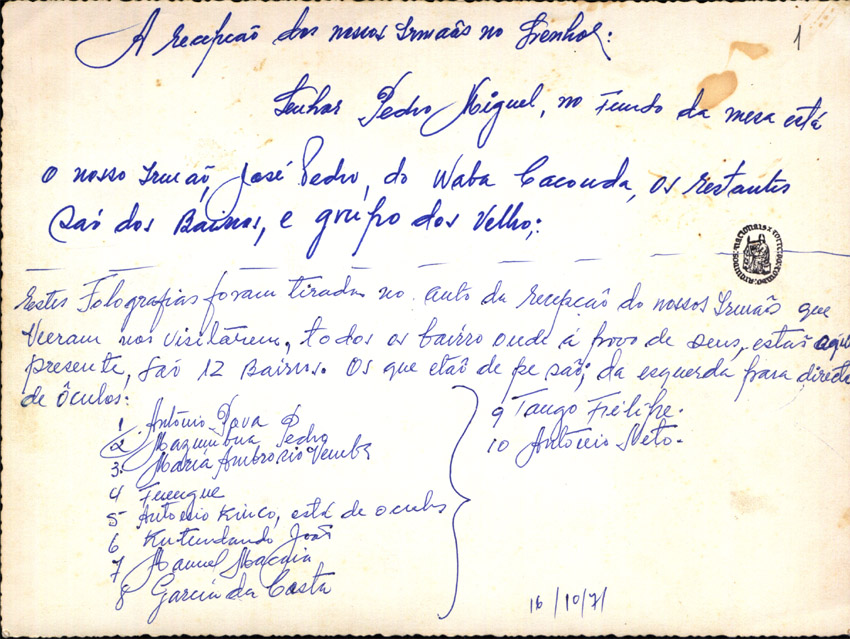 A recepção dos nossos Irmaãs no Senhor:
1
Senhor Pedro Miguel, no Fundo da mesa está
O nosso Irmaõ, José Pedro, do Waba Caconda, os restantes
Saõ dos Bairros, e grupo dos Velho;
Estes Fotografias foram tirada no auto da recepção do nossos Irmaõs que
Vieram nos visitarem, todos os bairro onde á povo de Deus, estaõ aqui
presente, Saõ 12 Bairros. Os que etaõ de pe saõ; da esquerda para directa
de Óculos:
1. António Pava D
2 Pedro
3. Maria Ambrosio Vemba
4
5 Antonio Kinco, está de oculos
6 João
7 Manuel
8 Garcia da Costa
9 Tango Filipe.
10 Antonio Neto.
16/10/71